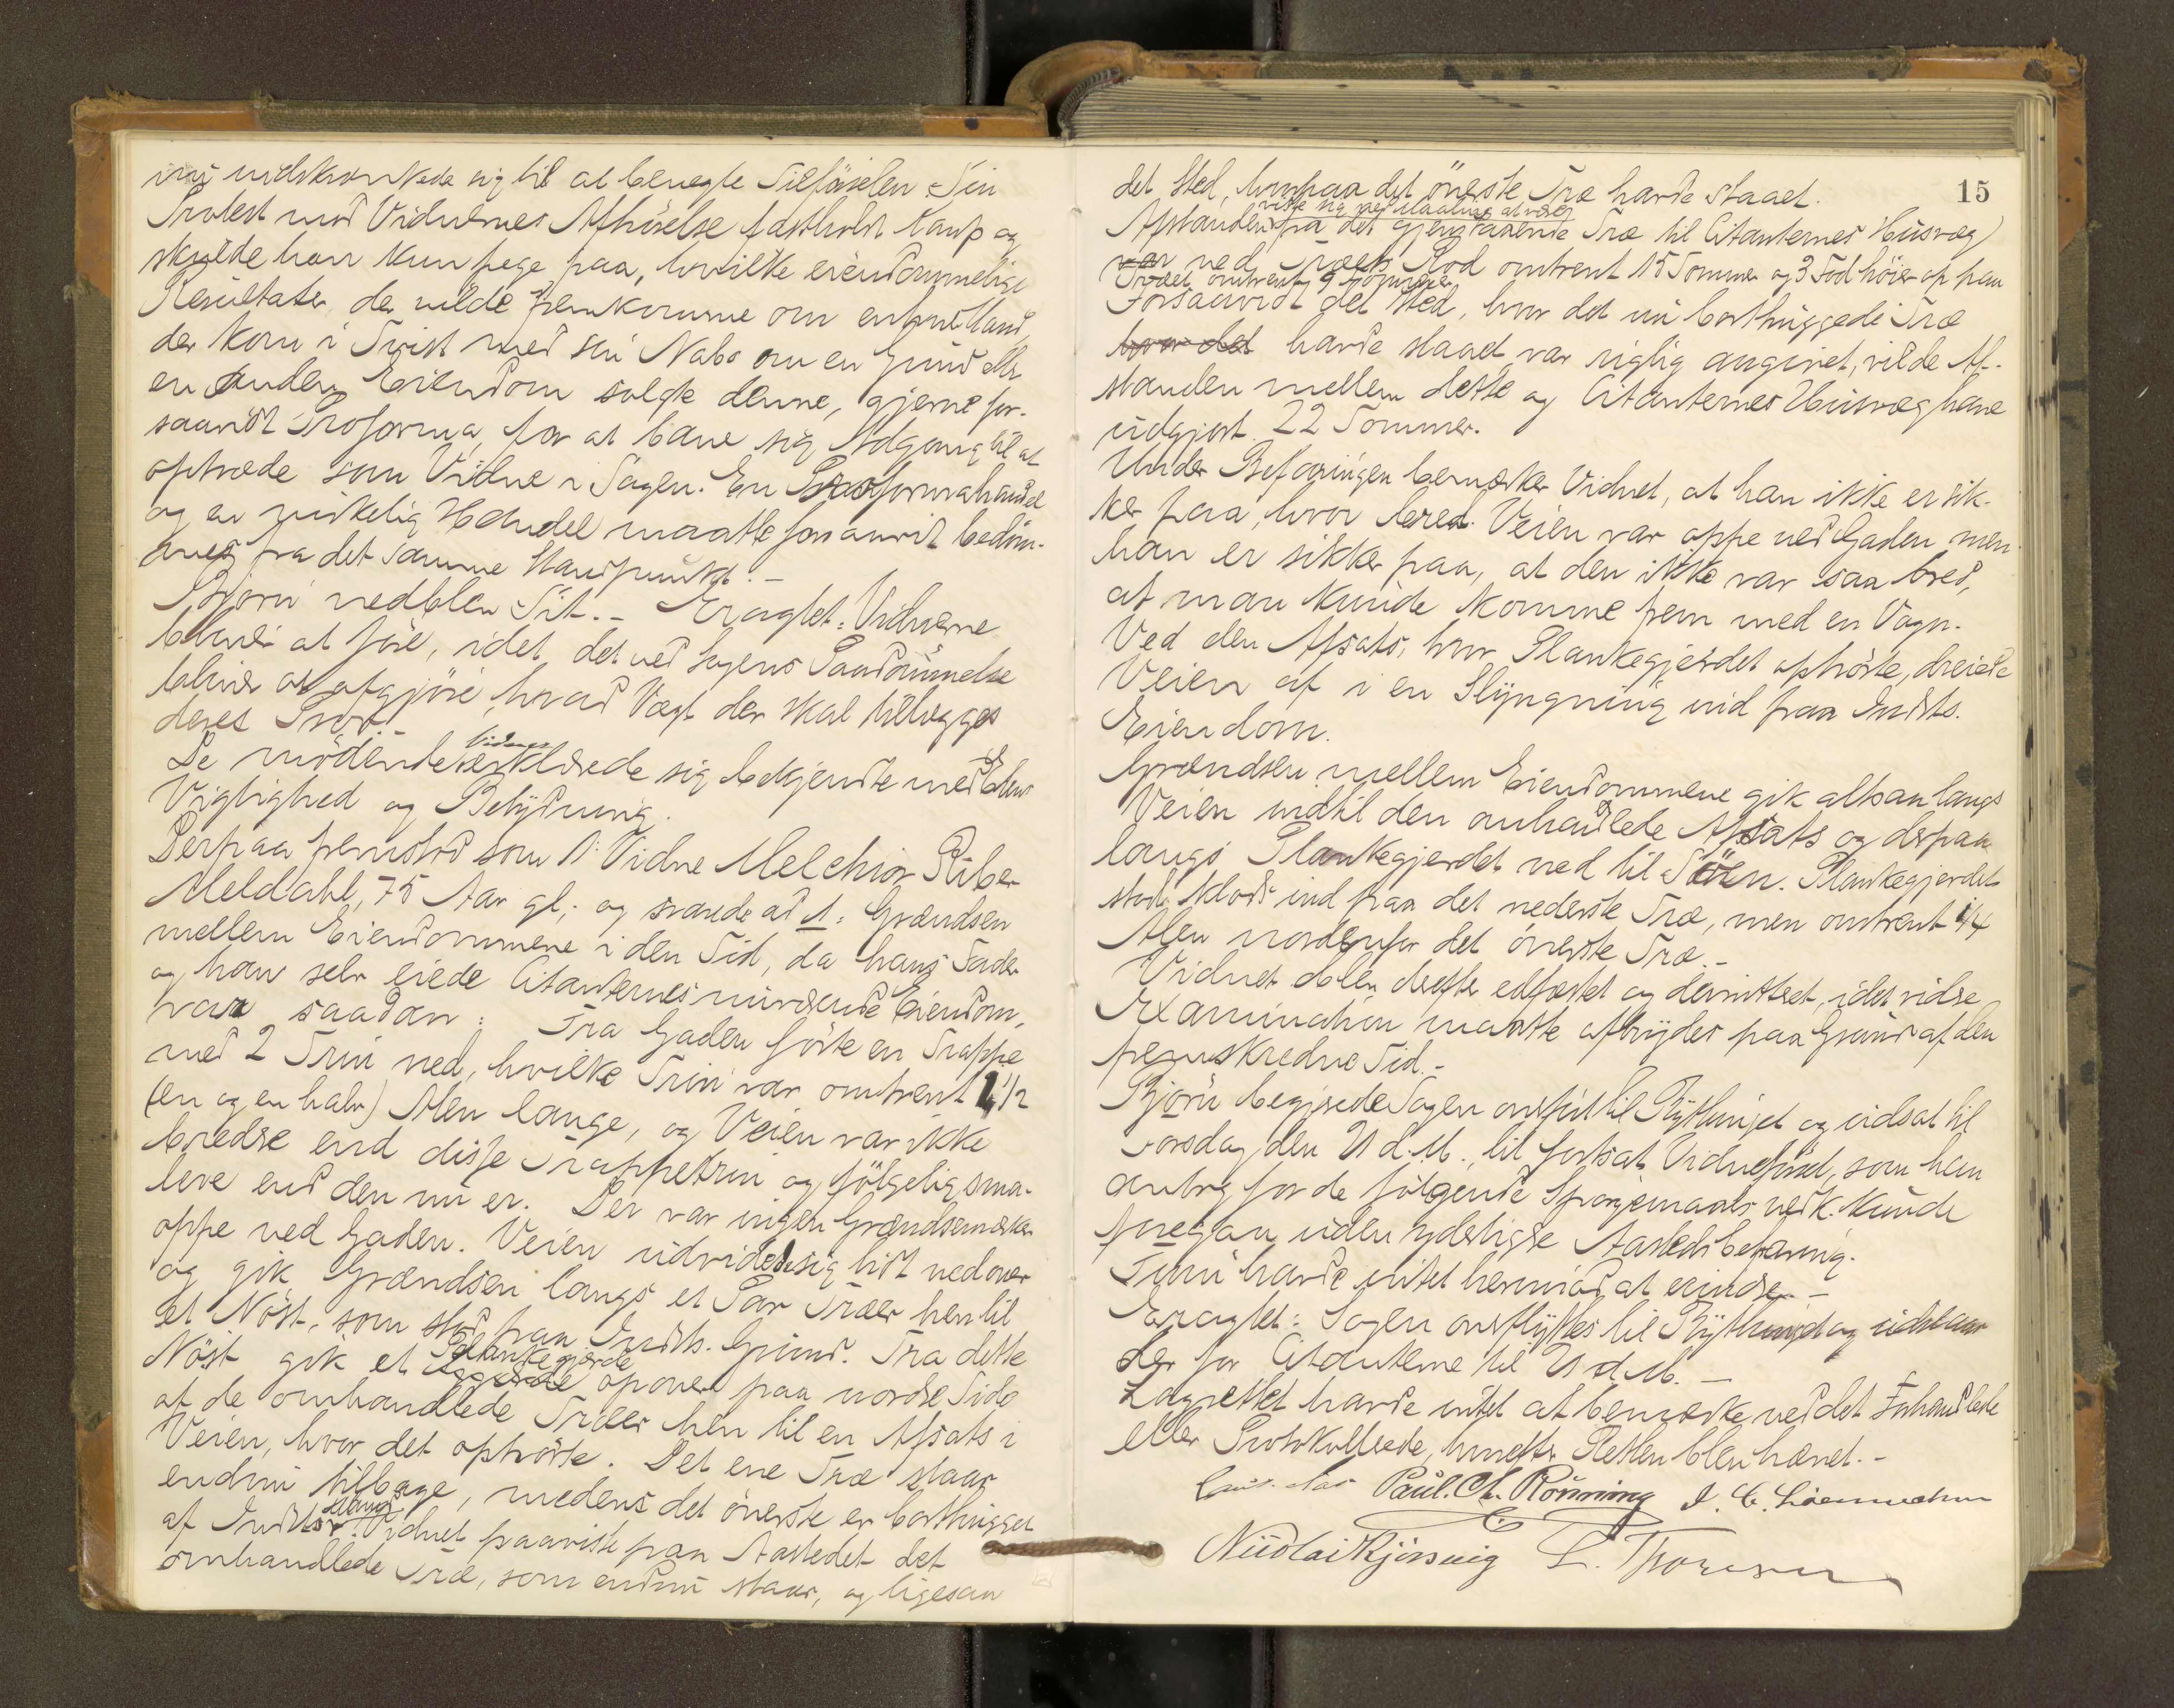 nu indskrænkede sig til at benegte Tilförselen Sin
Protest mod Vidnernes Afhörelse fastholdt Kamp og
skulde han kun pege paa, hvilke eiendommelige
Resultater, der vilde fremkomme om enhver Mand,
der kom i Tvist med sin Nabo om en Grund eller
en anden Eiendom solgte denne, gjerne for-
saavidt Proforma, for at bane sig Adgang til at
optræde som Vidne i Sagen. En Proformahandel
og en virkelig Handel maatte forsaavidt bedöm-
mes fra det samme Standpunkt. –
Björn nedblev Sit. – Eragtet: Vidnerne
bliver at före, idet det ved Sagens Paadömmelse
bliver at afgjöre, hvad Vægt der skal tillægges
deres Prov. –
De mödende Vidner erklærede sig bekjendte med Edens
Vigtighed og Betydning.
Derpaa fremstod som 1: Vidne Melchior Riber
Meldahl, 75 Aar gl.; og svarede ad 1: Grændsen
mellem Eiendommene i den Tid, da hans Fader
og han selv eiede Citanternes nuværende Eiendom,
var saadan: Fra Gaden förte en Trappe
med 2 Trin ned, hvilke Trin var omtrent 1 1/2
(en og en halv) Alen lange, og Veien var ikke
bredere end disse Trappetrin og fölgelig sma-
lere end den nu er. Der var ingen Grændsemærker
oppe ved Gaden. Veien udvidede sig lidt nedover
og gik Grændsen langs et Par Træer hen til
et Nöst, som stod paa Indsts. Grund. Fra dette
Nöst gik et Plankegjerde opover paa nordre Side
af de omhandlede Træer hen til en Afsats i
Veien, hvor det ophörte. Det ene Træ staar
endnu tilbage, medens det överste er borthugget
af Indsts. Mand. Vidnet paaviste paa Aastedet det
omhandlede Træ, som endnu staar, og ligesaa
15
det Sted, hvorpaa det överste Træ havde staaet.
viste sig ved Maaling at være
Afstanden fra det gjenstaaende Træ til Citanternes Husvæg
var ved Træets Rod omtrent 15 Tommer og 3 Fod höier op paa
Træet omtrent 9 Tommer.
Forsaavidt det Sted, hvor det nu borthuggede Træ
hvor det havde staaet var rigtig angivet, vilde Af-
standen mellem dette og Citanternes Husvæg have
udgjort 22 Tommer.
Under Befaringen bemærker Vidnet, at han ikke er sik-
ker paa, hvor bred Veien var oppe ved Gaden men
han er sikker paa, at den ikke var saa bred,
at man kunde komme frem med en Vogn.
Ved den Afsats, hvor Plankegjerdet ophörte, dreiede
Veien af i en Slyngning ind paa Indsts.
Eiendom.
Grændsen mellem Eiendommene gik altsaa langs
Veien indtil den omhandlede Afsats og derpaa
langs Plankegjerdet ned til Söen. Plankegjerdet
stod klods ind paa det nederste Træ, men omtrent 1/4
Alen nordenfor det överste Træ. –
Vidnet blev derefter edfæstet og demitteret, idet videre
Examination maatte afbrydes paa Grund af den
fremskredne Tid. –
Björn begjærede Sagen overfört til Bythinget og udsat til
Torsdag den 21 d. M., til fortsat Vidneförsel, som han
antog for de fölgende Spörgsmaaler vedk. kunde
foregaa uden yderligere Aastedsbefaring.
havde intet herimod at erindre. –
Eragtet: Sagen overflyttes til Bythinget og udsættes
der for Citanterne til 21 d. M. –
Lagrettet havde intet at bemærke ved det Forhandlede
eller Protokollerede, hvorefter Retten blev hævet. –
Paul. Chr. Rönning
Nicolai Kjörsvig L. Thoresen